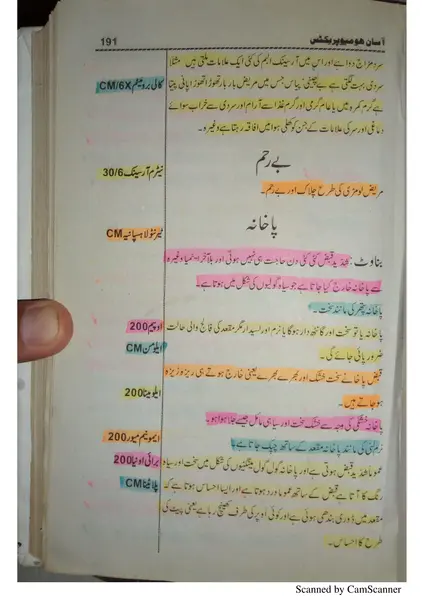 آسان ہومیوپریکٹس
191
سرد مزاج دوا ہے اور اس میں آرسینک البم کی کئی ایک علامات ملتی ہیں مثلا
سردی بہت لگتی ہے بے چینی، پیاس جس میں مریض بار بار تھوڑا تھوڑا پانی پیتا
ہے گرم کمرہ میں یا عام گرمی اور گرم غذا سے آرام اور سردی سے خراب سوائے
دماغی اور سر کی علامات کے جن کو کھلی ہوا میں افاقہ رہتا ہے وغیرہ۔
کالی برومیٹم CM/6X
بے رحم
نیٹرم آرسینک 30/6
مریض لومڑی کی طرح چالاک اور بے رحم۔
پاخانہ
ٹیرنٹولا ہسپانیہ CM
بناوٹ: شدید قبض کئی کئی دن حاجت ہی نہیں ہوتی اور بلآخر وغیرہ
سے پاخانہ خارج کیا جاتا ہے جو سیاہ گولیوں کی شکل میں ہوتا ہے۔
پاخانہ پتھر کی مانند سخت۔
اوپیم 200
پاخانہ یا تو سخت اور گانٹھ دار ہوگا یا نرم اور لیسدار مگر مقعد کی فالجی حالت
ایلومن CM
ضرور پائی جائے گی۔
قبض پاخانے سخت خشک اور بھربھرے یعنی خارج ہوتے ہی ریزہ ریزہ
ایلومینا 200
ہو جاتے ہیں۔
پاخانہ خشکی کی وجہ سے خشک سخت اور سیاہی مائل جیسے جلا ہوا ہو۔
ایمونیم میور 200
نرم مٹی کی مانند پاخانہ مقعد کے ساتھ چپک جاتا ہے۔
برائی اونیا 200
عموما شدید قبض ہوتی ہے اور پاخانہ گول گول مینگنیوں کی شکل میں سخت اور سیاہ
پلاٹینا CM
رنگ کا آتا ہے قبض کے ساتھ عموما درد ہوتا ہے اور ایسا احساس ہوتا ہے کہ
مقعد میں ڈوری بندھی ہوئی ہے اور کوئی اوپر کی طرف کھینچ رہا ہے یعنی پیٹ کی
طرح کا احساس۔
Scanned by CamScanner